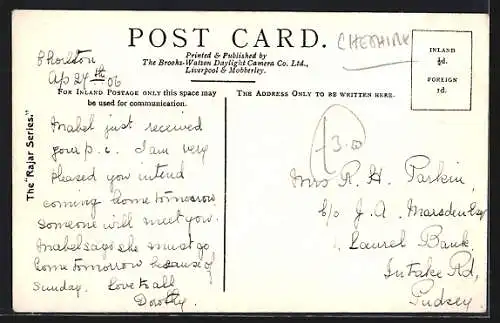 POST CARD.
CHESHIRE
Printed & Published by
The Brooks-Watson Daylight Camera Co. Ltd.,
Liverpool & Mobberley.
INLAND
½d.
FOREIGN
1d.
Chorlton
Ap 24th 06
FOR INLAND POSTAGE ONLY this space may
be used for communication.
THE ADDRESS ONLY TO BE WRITTEN HERE.
The "Rajar Series."
Mabel just received
your p.c. I am very
pleased you intend
coming home tomorrow
someone will meet you.
Mabel says she must go
home tomorrow because of
Sunday. Love to all
Dorothy.
3.00
Mrs R. H. Parkin,
c/o J. A. Marsden Esq
Laurel Bank,
Intake Rd,
Pudsey.